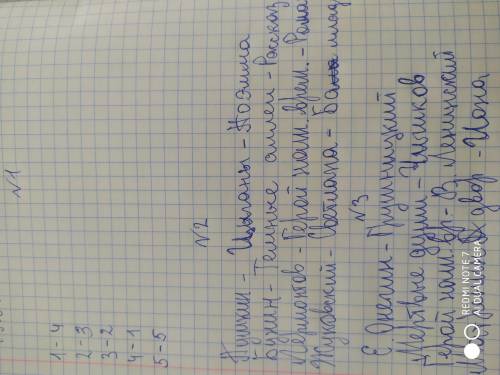 №1
1-4
2-3
3-2
4-1
5-5
№2
Пушкин - Цыганы - Поэмма
Бунин - Темные аллеи - Рассказ
Лермонтов - Герой наш. врем. - Рома
Жуковский - Светлана -
№3
Е. Онегин - Грушницкий
Мертвые души - Чичиков
Герой наш. вр - В. Ленинский
двор - Иона
REDMI NOTE 7
AI DUAL CAMERA